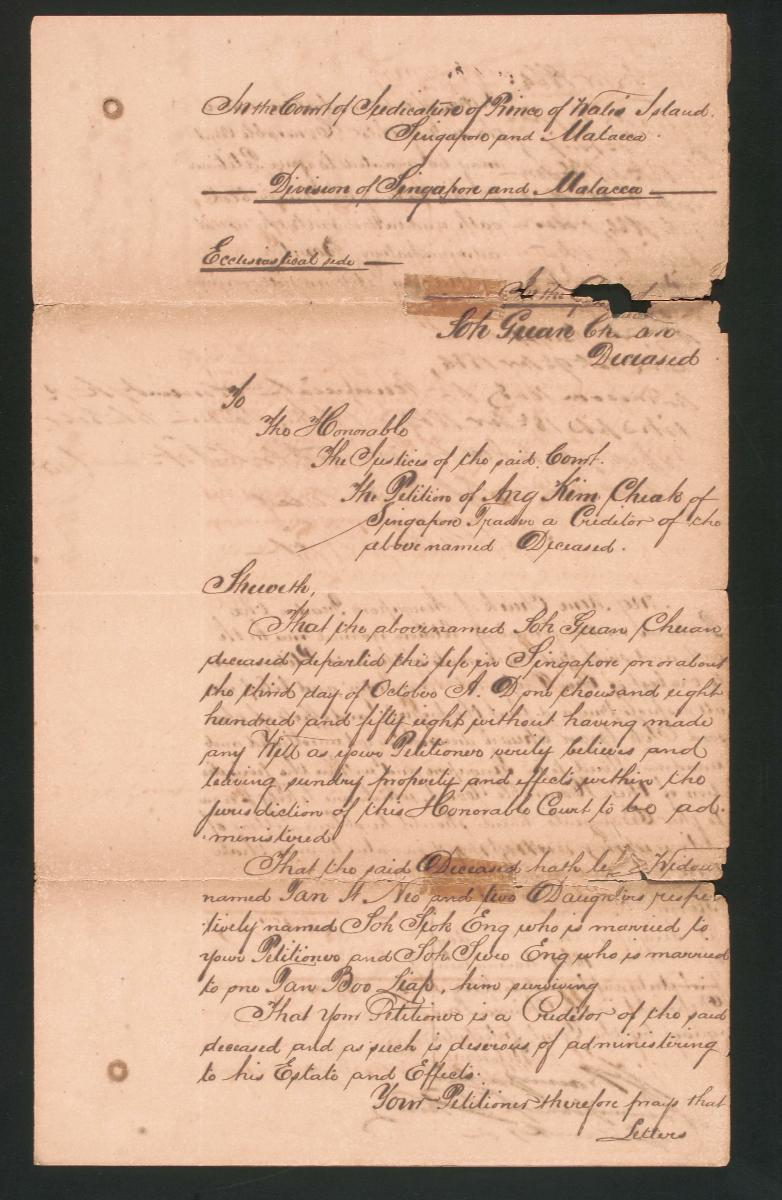 In the Court of Judicature of Prince of Wales Island.
Singapore and Malacca.
Division of Singapore and Malacca
Ecclesiastical side
In the Good
Soh Guan Ch an
Deceased
To
The Honorable
The Justices of the said Court.
The Petition of Ang Kim Cheak of
Singapore Trader a Creditor of the
above named Deceased.
Sheweth,
That the abovenamed Soh Guan Chuan
deceased departed this life in Singapore on or about
the third day of October A. D one thousand eight
hundred and fifty eight without having made
any Will as your Petitioner verily believes and
leaving sundry property and effects within the
jurisdiction of this Honorable Court to be ad-
ministered
That the said Deceased hath le Widow
named Tan It Neo and two Daughters respec-
tively named Soh Siok Eng who is married to
your Petitioner and Soh Swee Eng who is married
to one Tan Boo Liap, him surviving
That Your Petitioner is a Creditor of the said
deceased and as such is desirous of administering
to his Estate and Effects.
Your Petitioner therefore prays that
Letters